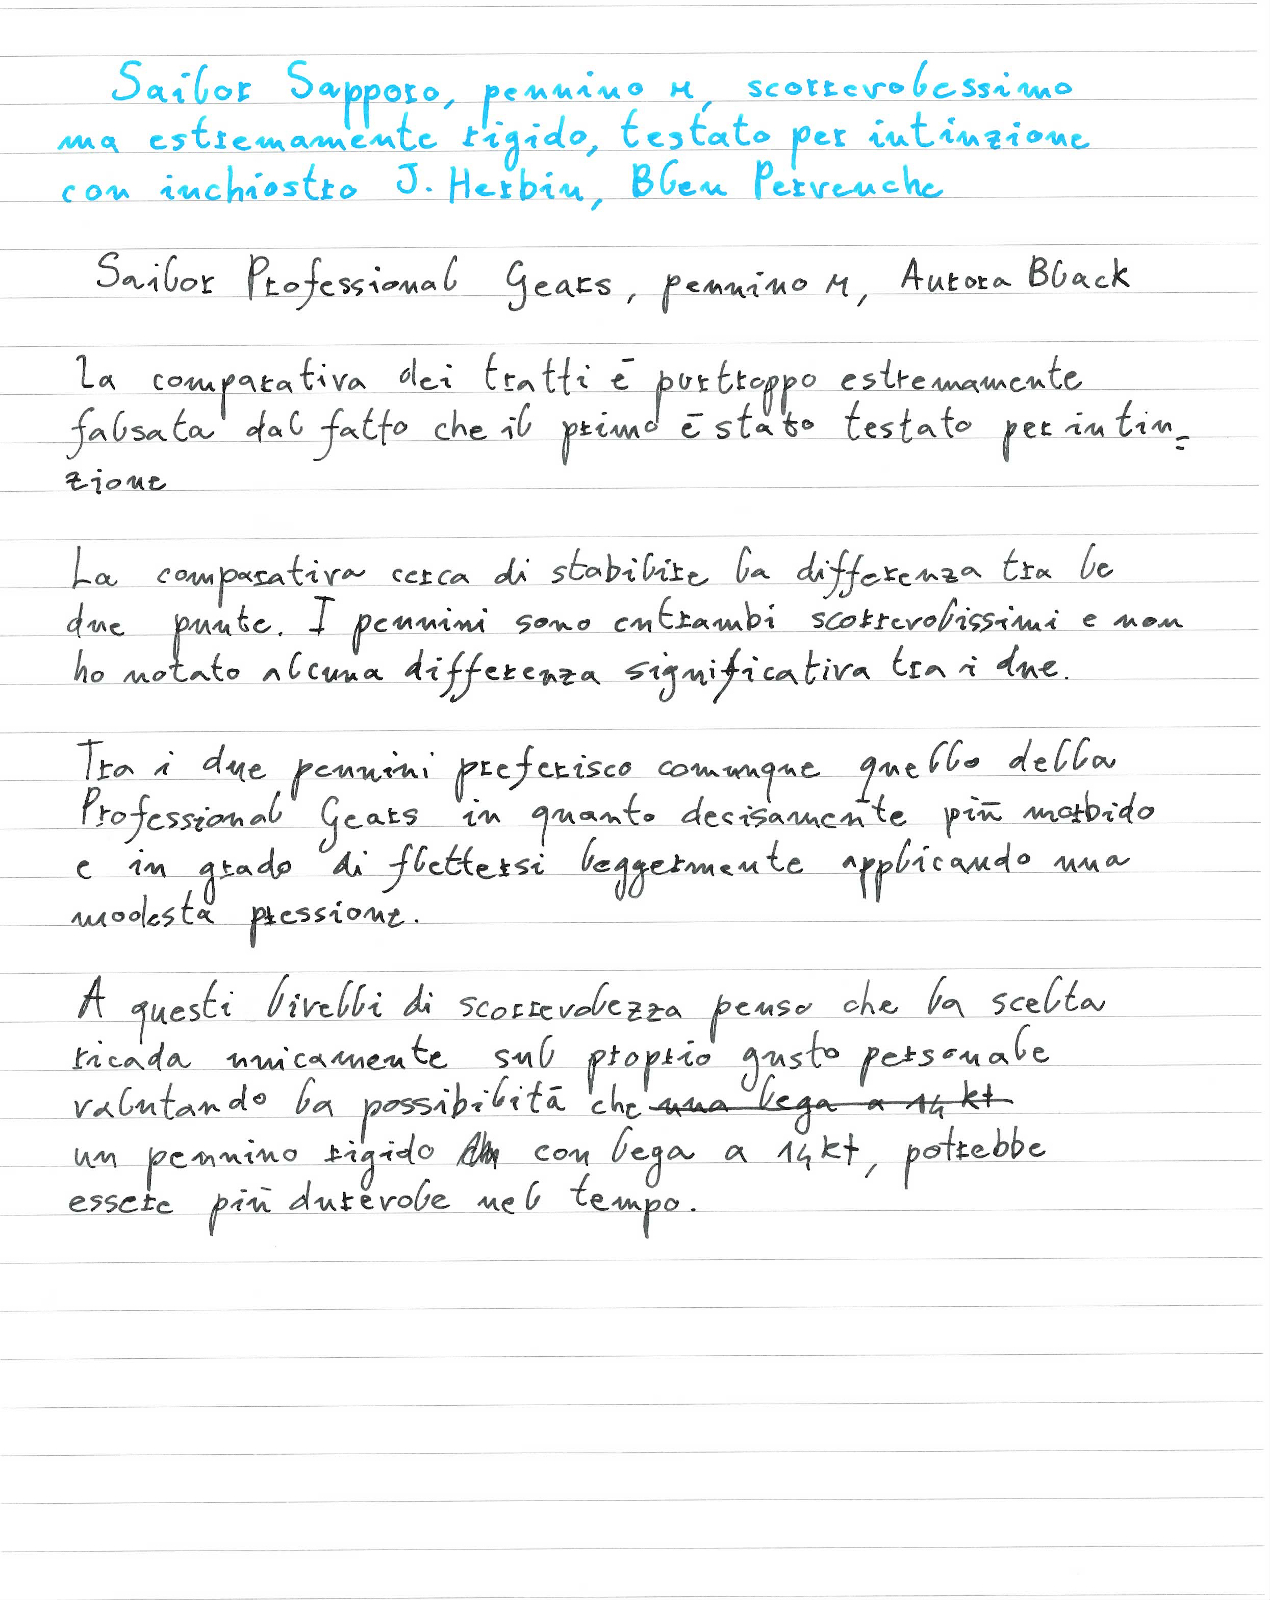 Sailor Sapporo, pennino M, scorrevolessimo
ma estremamente rigido, testato per intinzione
con inchiostro J. Herbin, Bleu Pervenche
Sailor Professional Gears, pennino M, Aurora Black
La comparativa dei tratti è purtroppo estremamente
falsata dal fatto che il primo è stato testato per intin=
zione
La comparativa cerca di stabilire la differenza tra le
due punte. I pennini sono entrambi scorrevolissimi e non
ho notato alcuna differenza significativa tra i due.
Tra i due pennini preferisco comunque quello della
Professional Gears in quanto decisamente più morbido
e in grado di flettersi leggermente applicando una
modesta pressione.
A questi livelli di scorrevolezza penso che la scelta
ricada unicamente sul proprio gusto personale
valutando la possibilità che una lega a 14 kt
un pennino rigido con lega a 14kt, potrebbe
essere più durevole nel tempo.